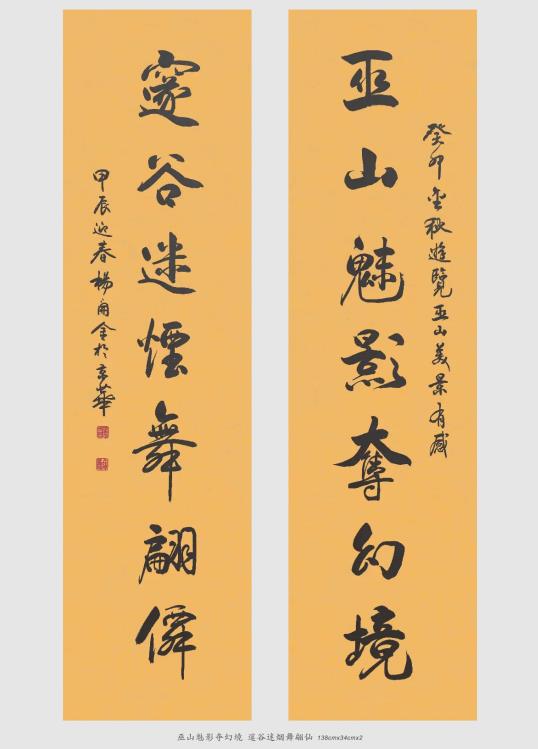 癸卯金秋遊覽巫山美景有感
巫山魅影奪幻境
邃谷迷煙舞翩僊
甲辰迎春楊金於京華
巫山魅影夺幻境 邃谷迷烟舞翩仙 138cmx34cmx2